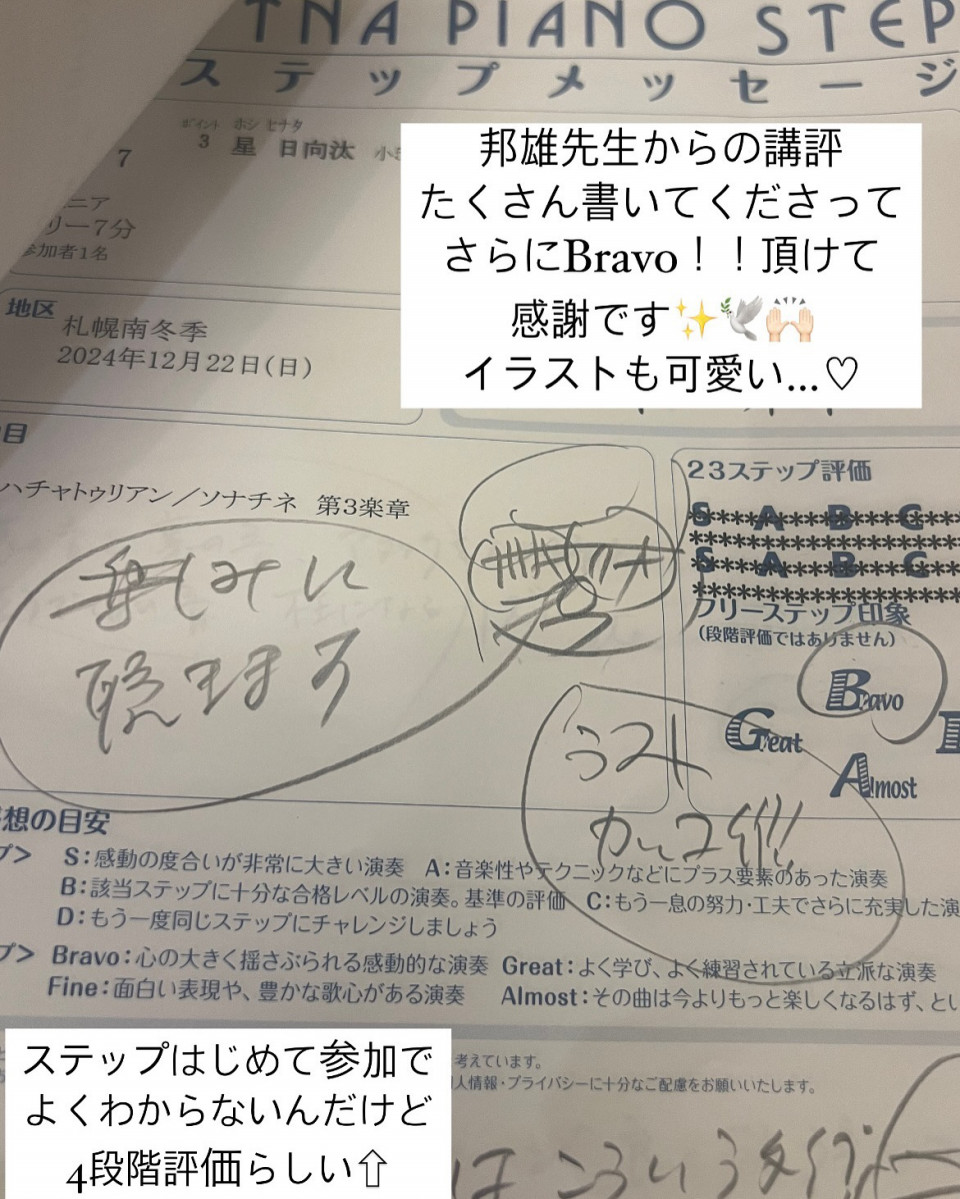 TNA PIANO STEP
ステップメッセージ
ポイント ホシ ヒナタ
7
3 星 日向汰
邦雄先生からの講評
たくさん書いてくださって
さらにBravo！！頂けて
感謝です✨🕊️🙌🏻
イラストも可愛い…♡
ニア
リー7分
参加者1名
地区
札幌南冬季
2024年12月22日(日)
目
ハチャトゥリアン／ソナチネ 第3楽章
23ステップ評価
S A B C
*******************
S A B C
*******************
フリーステップ印象
(段階評価ではありません)
Bravo
Great
Almost
楽しみに
聴きます
ラスト
カッコイイ!!!
想の目安
プ> S：感動の度合いが非常に大きい演奏 A：音楽性やテクニックなどにプラス要素のあった演奏
B：該当ステップに十分な合格レベルの演奏。基準の評価 C：もう一息の努力・工夫でさらに充実した演
D：もう一度同じステップにチャレンジしましょう
プ> Bravo：心の大きく揺さぶられる感動的な演奏 Great：よく学び、よく練習されている立派な演奏
Fine：面白い表現や、豊かな歌心がある演奏 Almost：その曲は今よりもっと楽しくなるはず、とい
考えています。
人情報・プライバシーに十分なご配慮をお願いいたします。
ステップはじめて参加で
よくわからないんだけど
4段階評価らしい⇧